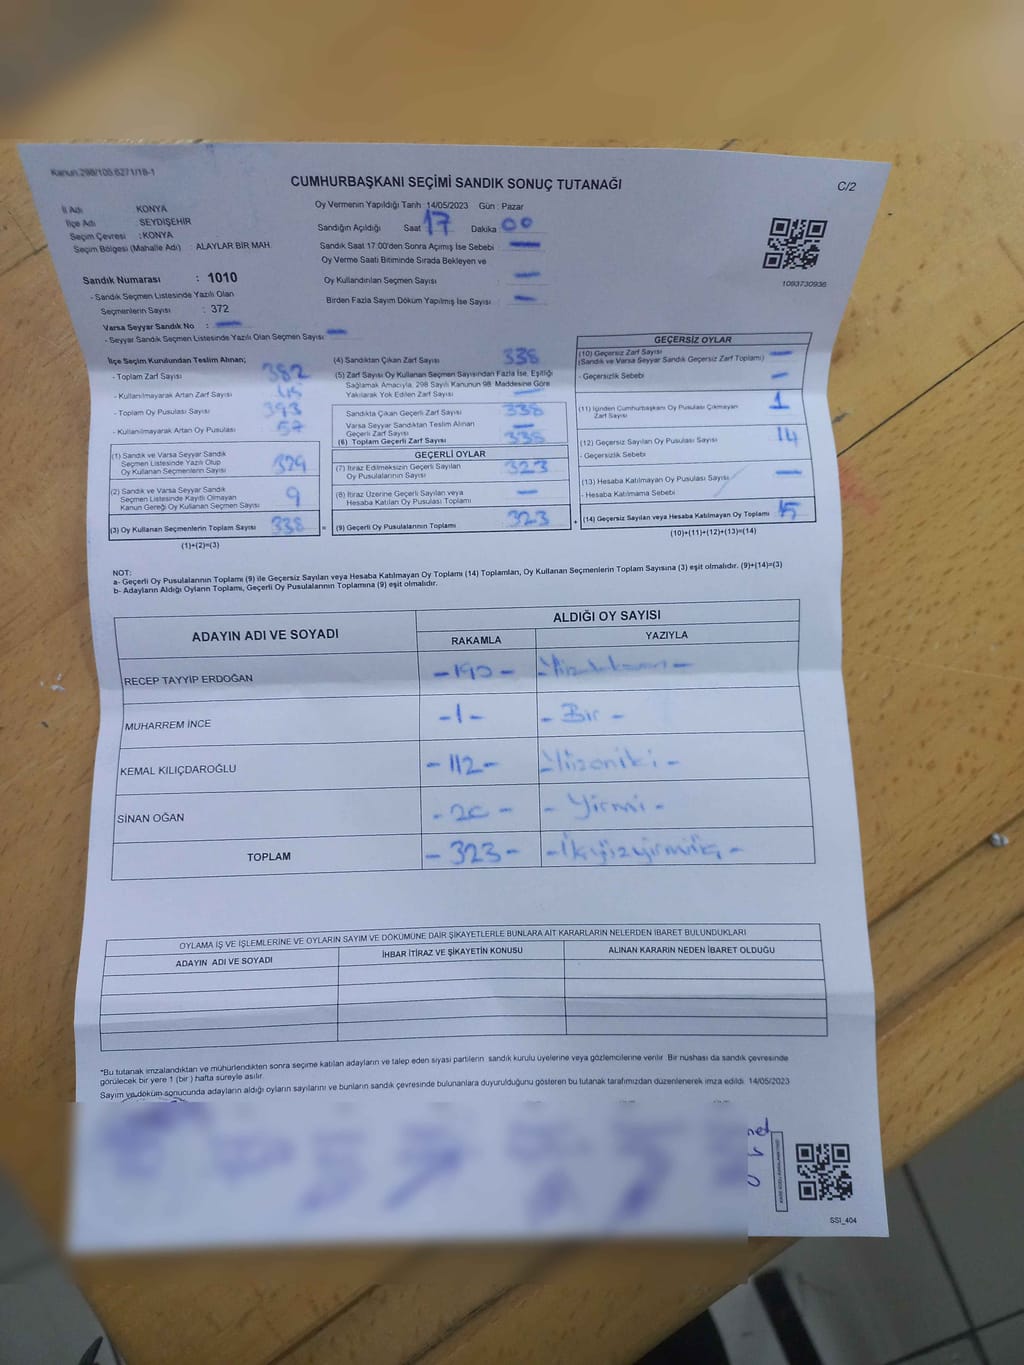 Kanun.298/105.6271/18-1
CUMHURBAŞKANI SEÇİMİ SANDIK SONUÇ TUTANAĞI
C/2
İl Adı KONYA
İlçe Adı :SEYDİŞEHİR
Seçim Çevresi :KONYA
Seçim Bölgesi (Mahalle Adı) : ALAYLAR BİR MAH.
Oy Vermenin Yapıldığı Tarih :14/05/2023 Gün : Pazar
Sandığın Açıldığı Saat 17 Dakika 00
Sandık Saat 17:00'den Sonra Açımış İse Sebebi : —
Oy Verme Saati Bitiminde Sırada Bekleyen ve
Oy Kullandırılan Seçmen Sayısı : —
Birden Fazla Sayım Döküm Yapılmış İse Sayısı : —
1093730936
Sandık Numarası : 1010
- Sandık Seçmen Listesinde Yazılı Olan
Seçmenlerin Sayısı : 372
Varsa Seyyar Sandık No : —
- Seyyar Sandık Seçmen Listesinde Yazılı Olan Seçmen Sayısı : —
İlçe Seçim Kurulundan Teslim Alınan;
- Toplam Zarf Sayısı 382
- Kullanılmayarak Artan Zarf Sayısı
- Toplam Oy Pusulası Sayısı 393
- Kullanılmayarak Artan Oy Pusulası 57
(1) Sandık ve Varsa Seyyar Sandık
Seçmen Listesinde Yazılı Olup
Oy Kullanan Seçmenlerin Sayısı 329
(2) Sandık ve Varsa Seyyar Sandık
Seçmen Listesinde Kayıtlı Olmayan
Kanun Gereği Oy Kullanan Seçmen Sayısı 9
(3) Oy Kullanan Seçmenlerin Toplam Sayısı 338 =
(1)+(2)=(3)
(4) Sandıktan Çıkan Zarf Sayısı 338
(5) Zarf Sayısı Oy Kullanan Seçmen Sayısından Fazla İse, Eşitliği
Sağlamak Amacıyla, 298 Sayılı Kanunun 98. Maddesine Göre
Yakılarak Yok Edilen Zarf Sayısı —
Sandıkta Çıkan Geçerli Zarf Sayısı 338
Varsa Seyyar Sandıktan Teslim Alınan
Geçerli Zarf Sayısı —
(6) Toplam Geçerli Zarf Sayısı 338
GEÇERLİ OYLAR
(7) İtiraz Edilmeksizin Geçerli Sayılan
Oy Pusulalarının Sayısı 323
(8) İtiraz Üzerine Geçerli Sayılan veya
Hesaba Katılan Oy Pusulası Toplamı —
(9) Geçerli Oy Pusulalarının Toplamı 323 +
GEÇERSİZ OYLAR
(10) Geçersiz Zarf Sayısı
(Sandık ve Varsa Seyyar Sandık Geçersiz Zarf Toplamı) —
- Geçersizlik Sebebi —
(11) İçinden Cumhurbaşkanı Oy Pusulası Çıkmayan
Zarf Sayısı 1
(12) Geçersiz Sayılan Oy Pusulası Sayısı 14
- Geçersizlik Sebebi
(13) Hesaba Katılmayan Oy Pusulası Sayısı —
- Hesaba Katılmama Sebebi
(14) Geçersiz Sayılan veya Hesaba Katılmayan Oy Toplamı 15
(10)+(11)+(12)+(13)=(14)
NOT:
a- Geçerli Oy Pusulalarının Toplamı (9) ile Geçersiz Sayılan veya Hesaba Katılmayan Oy Toplamı (14) Toplamları, Oy Kullanan Seçmenlerin Toplam Sayısına (3) eşit olmalıdır. (9)+(14)=(3)
b- Adayların Aldığı Oyların Toplamı, Geçerli Oy Pusulalarının Toplamına (9) eşit olmalıdır.
ADAYIN ADI VE SOYADI
ALDIĞI OY SAYISI
RAKAMLA YAZIYLA
RECEP TAYYİP ERDOĞAN -190-
MUHARREM İNCE -1- - Bir -
KEMAL KILIÇDAROĞLU -112- - Yüzoniki -
SİNAN OĞAN - 20 - - Yirmi -
TOPLAM - 323 -
OYLAMA İŞ VE İŞLEMLERİNE VE OYLARIN SAYIM VE DÖKÜMÜNE DAİR ŞİKAYETLERLE BUNLARA AİT KARARLARIN NELERDEN İBARET BULUNDUKLARI
ADAYIN ADI VE SOYADI İHBAR İTİRAZ VE ŞİKAYETİN KONUSU ALINAN KARARIN NEDEN İBARET OLDUĞU
*Bu tutanak imzalandıktan ve mühürlendikten sonra seçime katılan adayların ve talep eden siyasi partilerin sandık kurulu üyelerine veya gözlemcilerine verilir. Bir nüshası da sandık çevresinde
görülecek bir yere 1 (bir) hafta süreyle asılır.
Sayım ve döküm sonucunda adayların aldığı oyların sayılarını ve bunların sandık çevresinde bulunanlara duyurulduğunu gösteren bu tutanak tarafımızdan düzenlenerek imza edildi. 14/05/2023
SSI_404